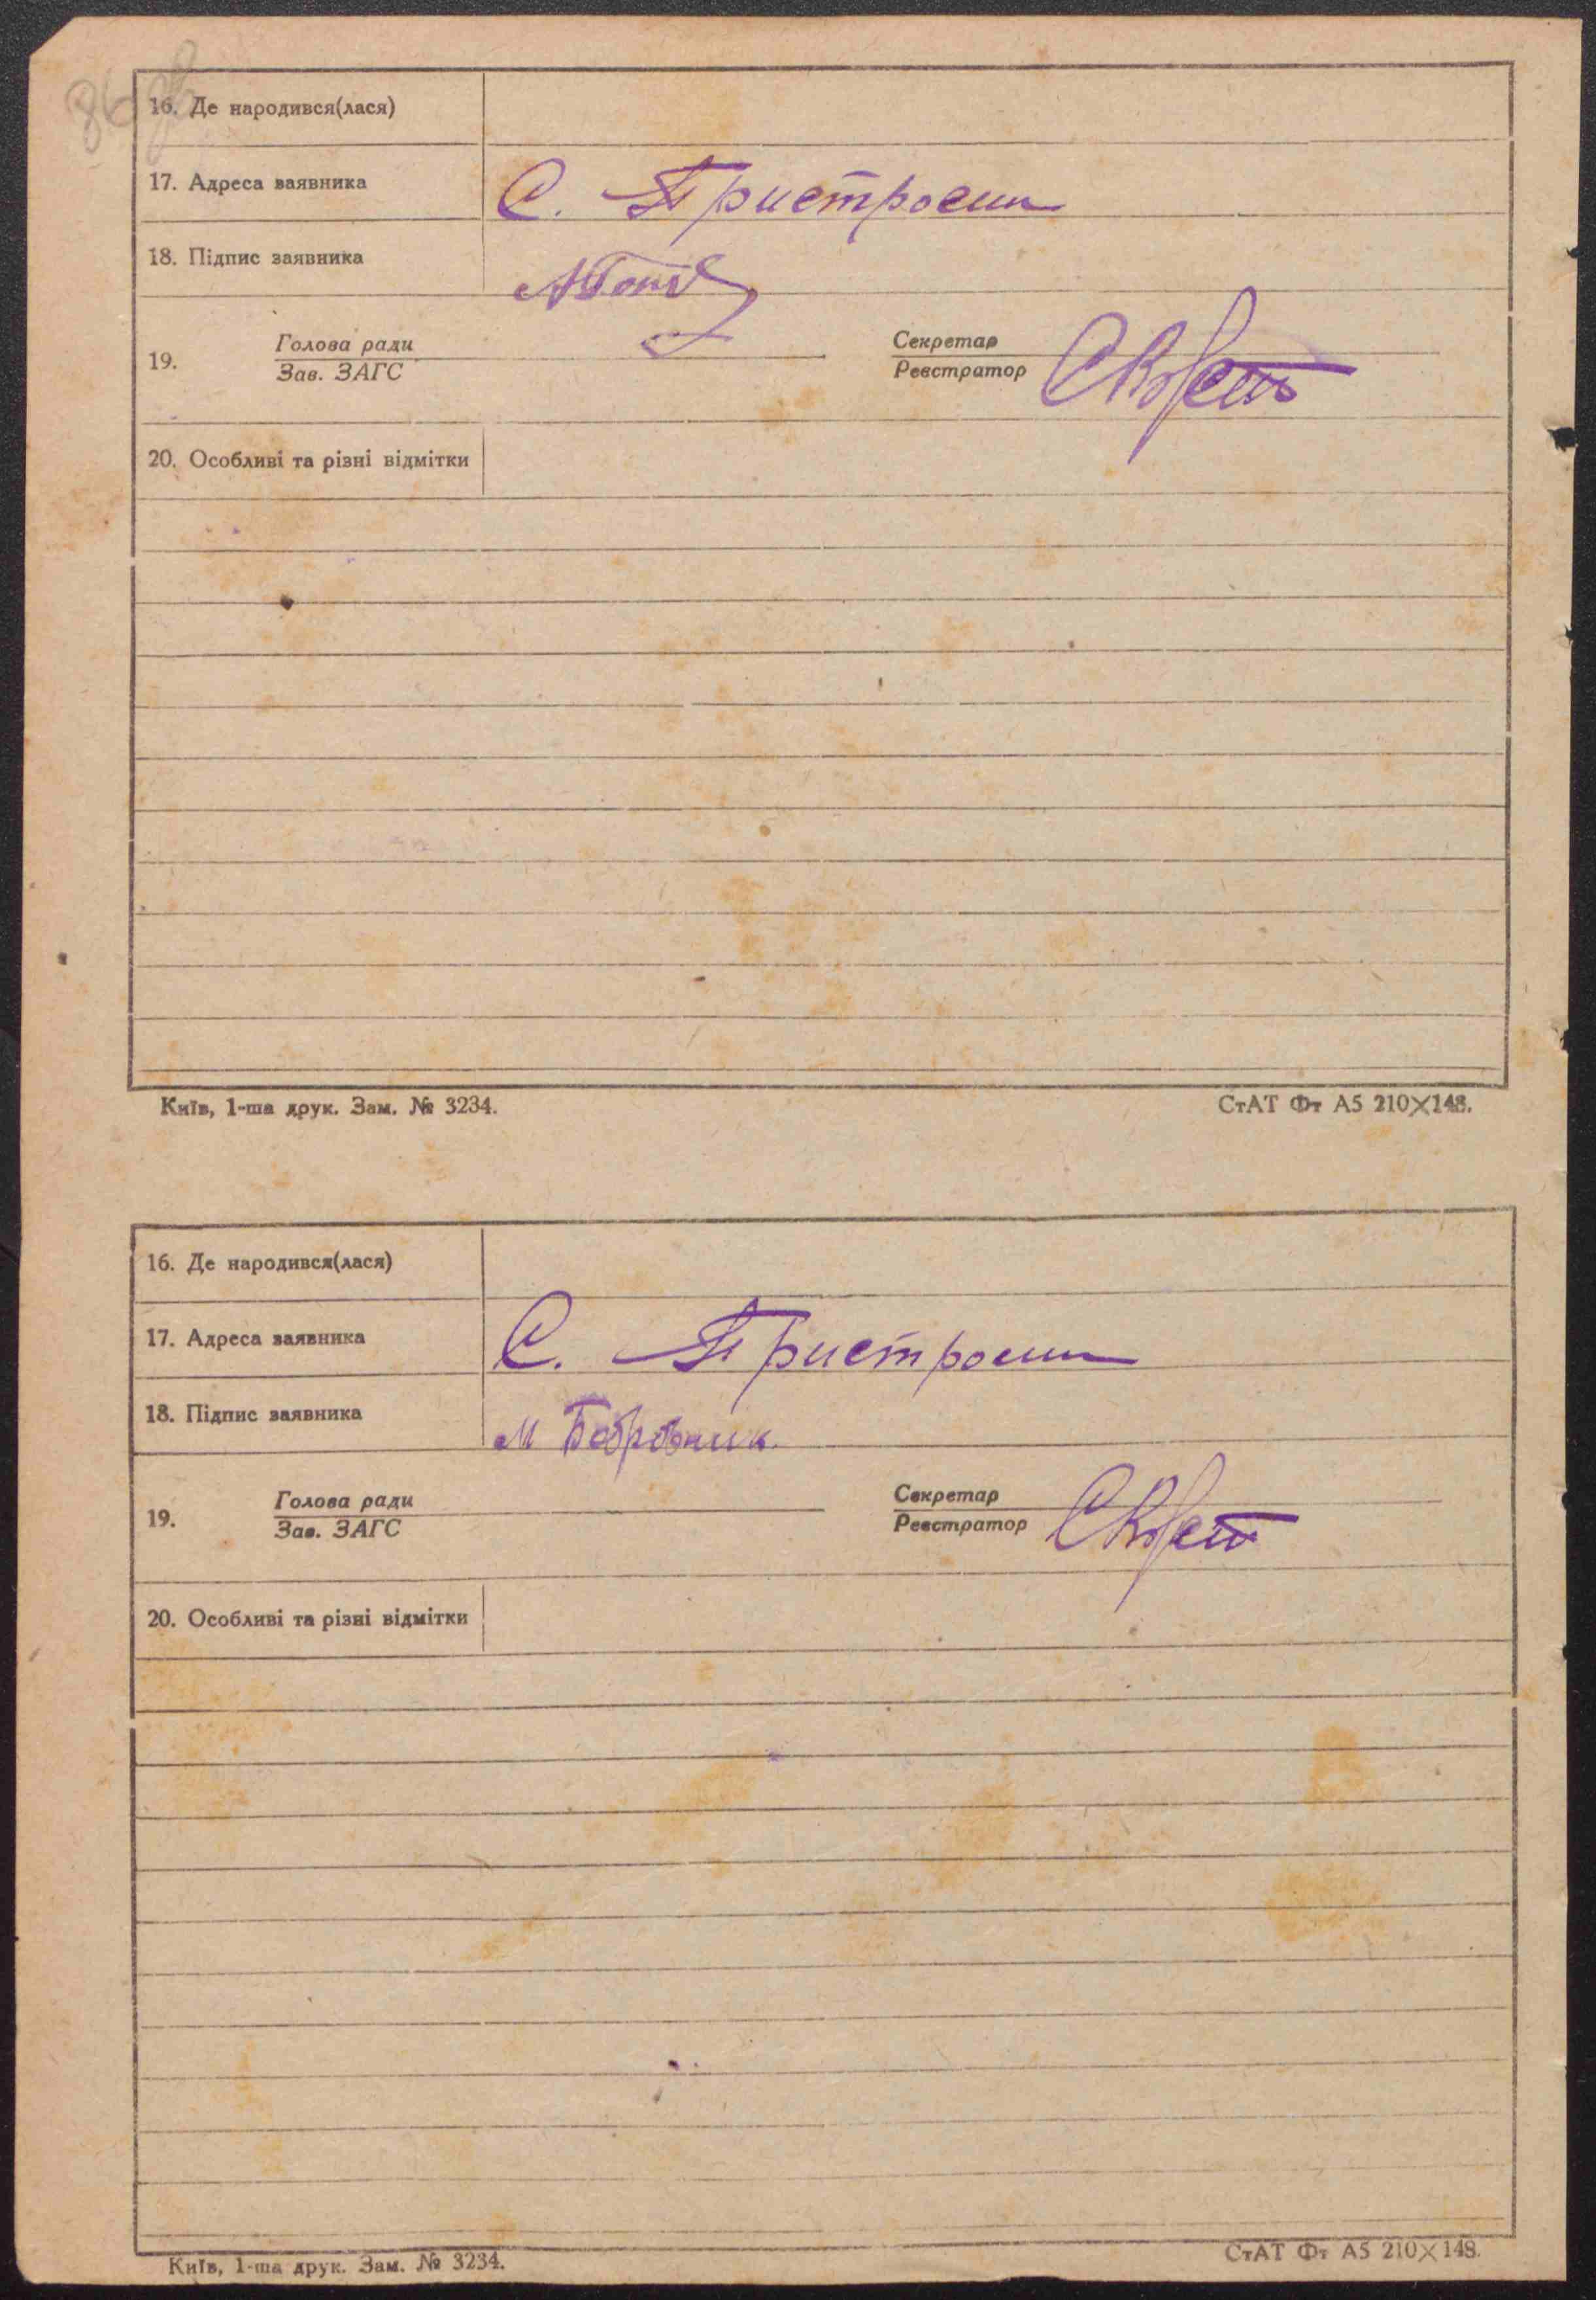 16. Де народився(лася)
17. Адреса заявника С. Пристроми
18. Підпис заявника
Голова ради Секретар
19.
Зав. ЗАГС Реєстратор
20. Особливі та різні відмітки
Київ, 1-ша друк. Зам. № 3234. СтАТ Фт А5 210×148.
16. Де народився(лася)
17. Адреса заявника С. Пристроми
18. Підпис заявника М Бобровник
Голова ради Секретар
19.
Зав. ЗАГС Реєстратор
20. Особливі та різні відмітки
Київ, 1-ша друк. Зам. № 3234. СтАТ Фт А5 210×148.